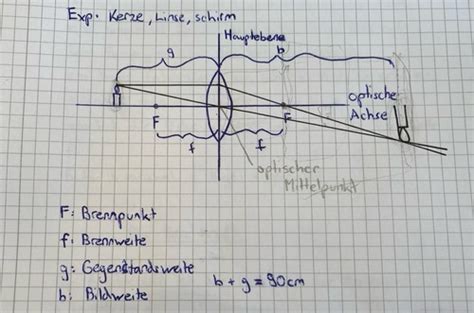 Exp. Kerze, Linse, schirm
Hauptebene
g
b
optische
Achse
F
F
f
f
optischer
Mittelpunkt
F: Brennpunkt
f: Brennweite
g: Gegenstandsweite
b: Bildweite
b + g = 90cm